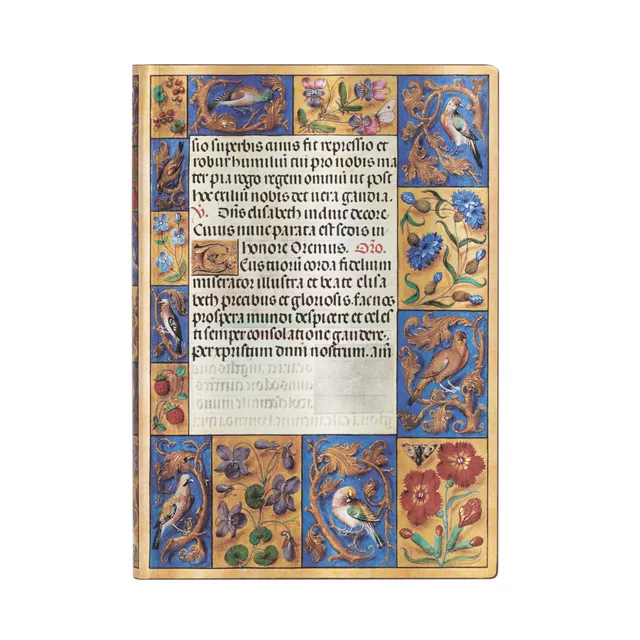 sio superbis cuius fit repressio et
robur humiliū cui pro nobis ma
ter pia rogo regem omniū ut post
hoc exiliū nobis det vera gaudia.
℣. Dñs elisabeth induit decore.
Cuius nunc parata est sedis in
honore Oremus. Oŕo.
Deus tuorū corda fidelium
miserator illustra et beate elisa
beth precibus et gloriosis. fac nos
prospera mundi despicere et celes
ti semper consolatione gaudere.
Per xpristum dnm̄ nostrum. am̄